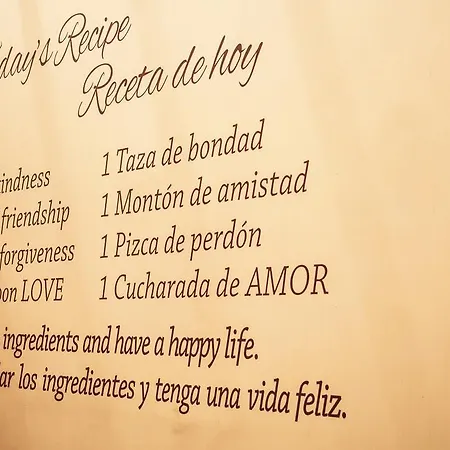 day's Recipe
Receta de hoy
kindness
friendship
forgiveness
LOVE
1 Taza de bondad
1 Montón de amistad
1 Pizca de perdón
1 Cucharada de AMOR
ingredients and have a happy life.
los ingredientes y tenga una vida feliz.